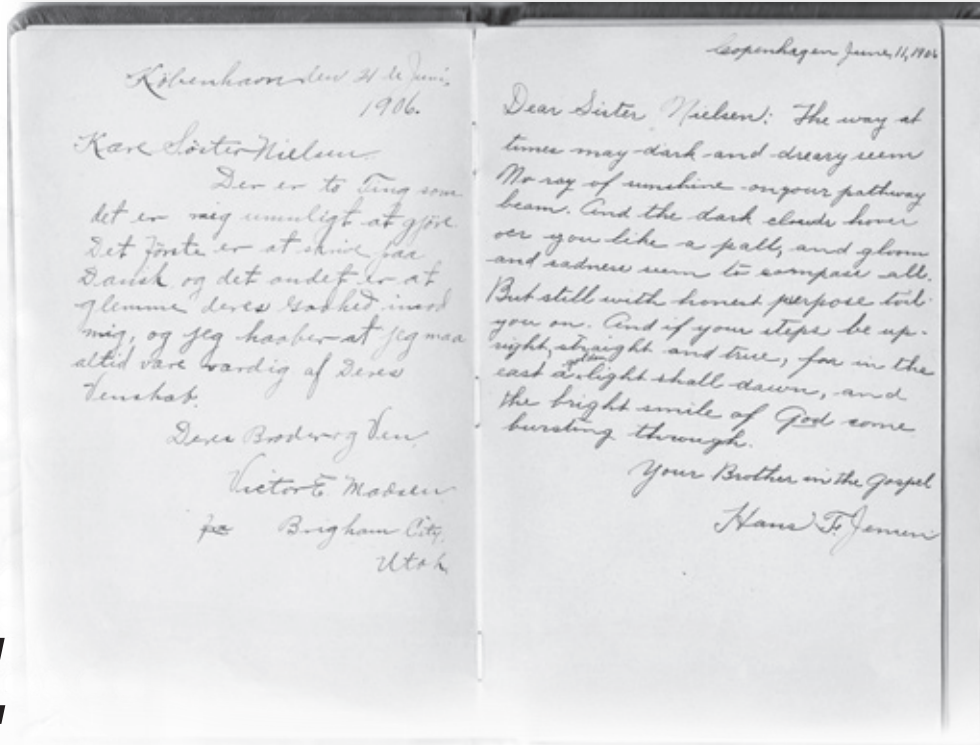 Köbenhavn den 21 de Juni.
1906.
Kære Söster Nielsen
Der er to Ting som
det er mig umuligt at gjöre.
Det förste er at skrive paa
Dansk og det andet er at
glemme deres Godhed imod
mig, og jeg haaber at jeg maa
altid være værdig af Deres
Venskab.
Deres Broder og Ven
Victor E. Madsen
Brigham City,
Utah.
Copenhagen June, 11, 1906
Dear Sister Nielsen: The way at
times may dark and dreary seem
No ray of sunshine on your pathway
beam. And the dark clouds hover
oer you like a pall, and gloom
and sadness seem to compass all.
But still with honest perpose toil
you on. And if your steps be up-
right, straight and true, for in the
east a light shall dawn, and
the bright smile of God come
bursting through.
Your Brother in the Gospel
Hans F. Jensen